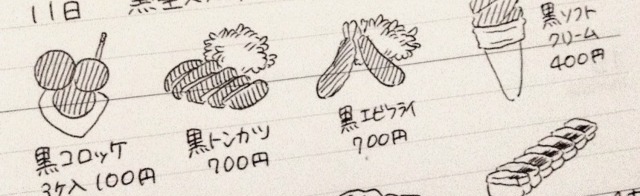 11日
黒ソフト
クリーム
400円
黒コロッケ
3ケ入 100円
黒トンカツ
700円
黒エビフライ
700円